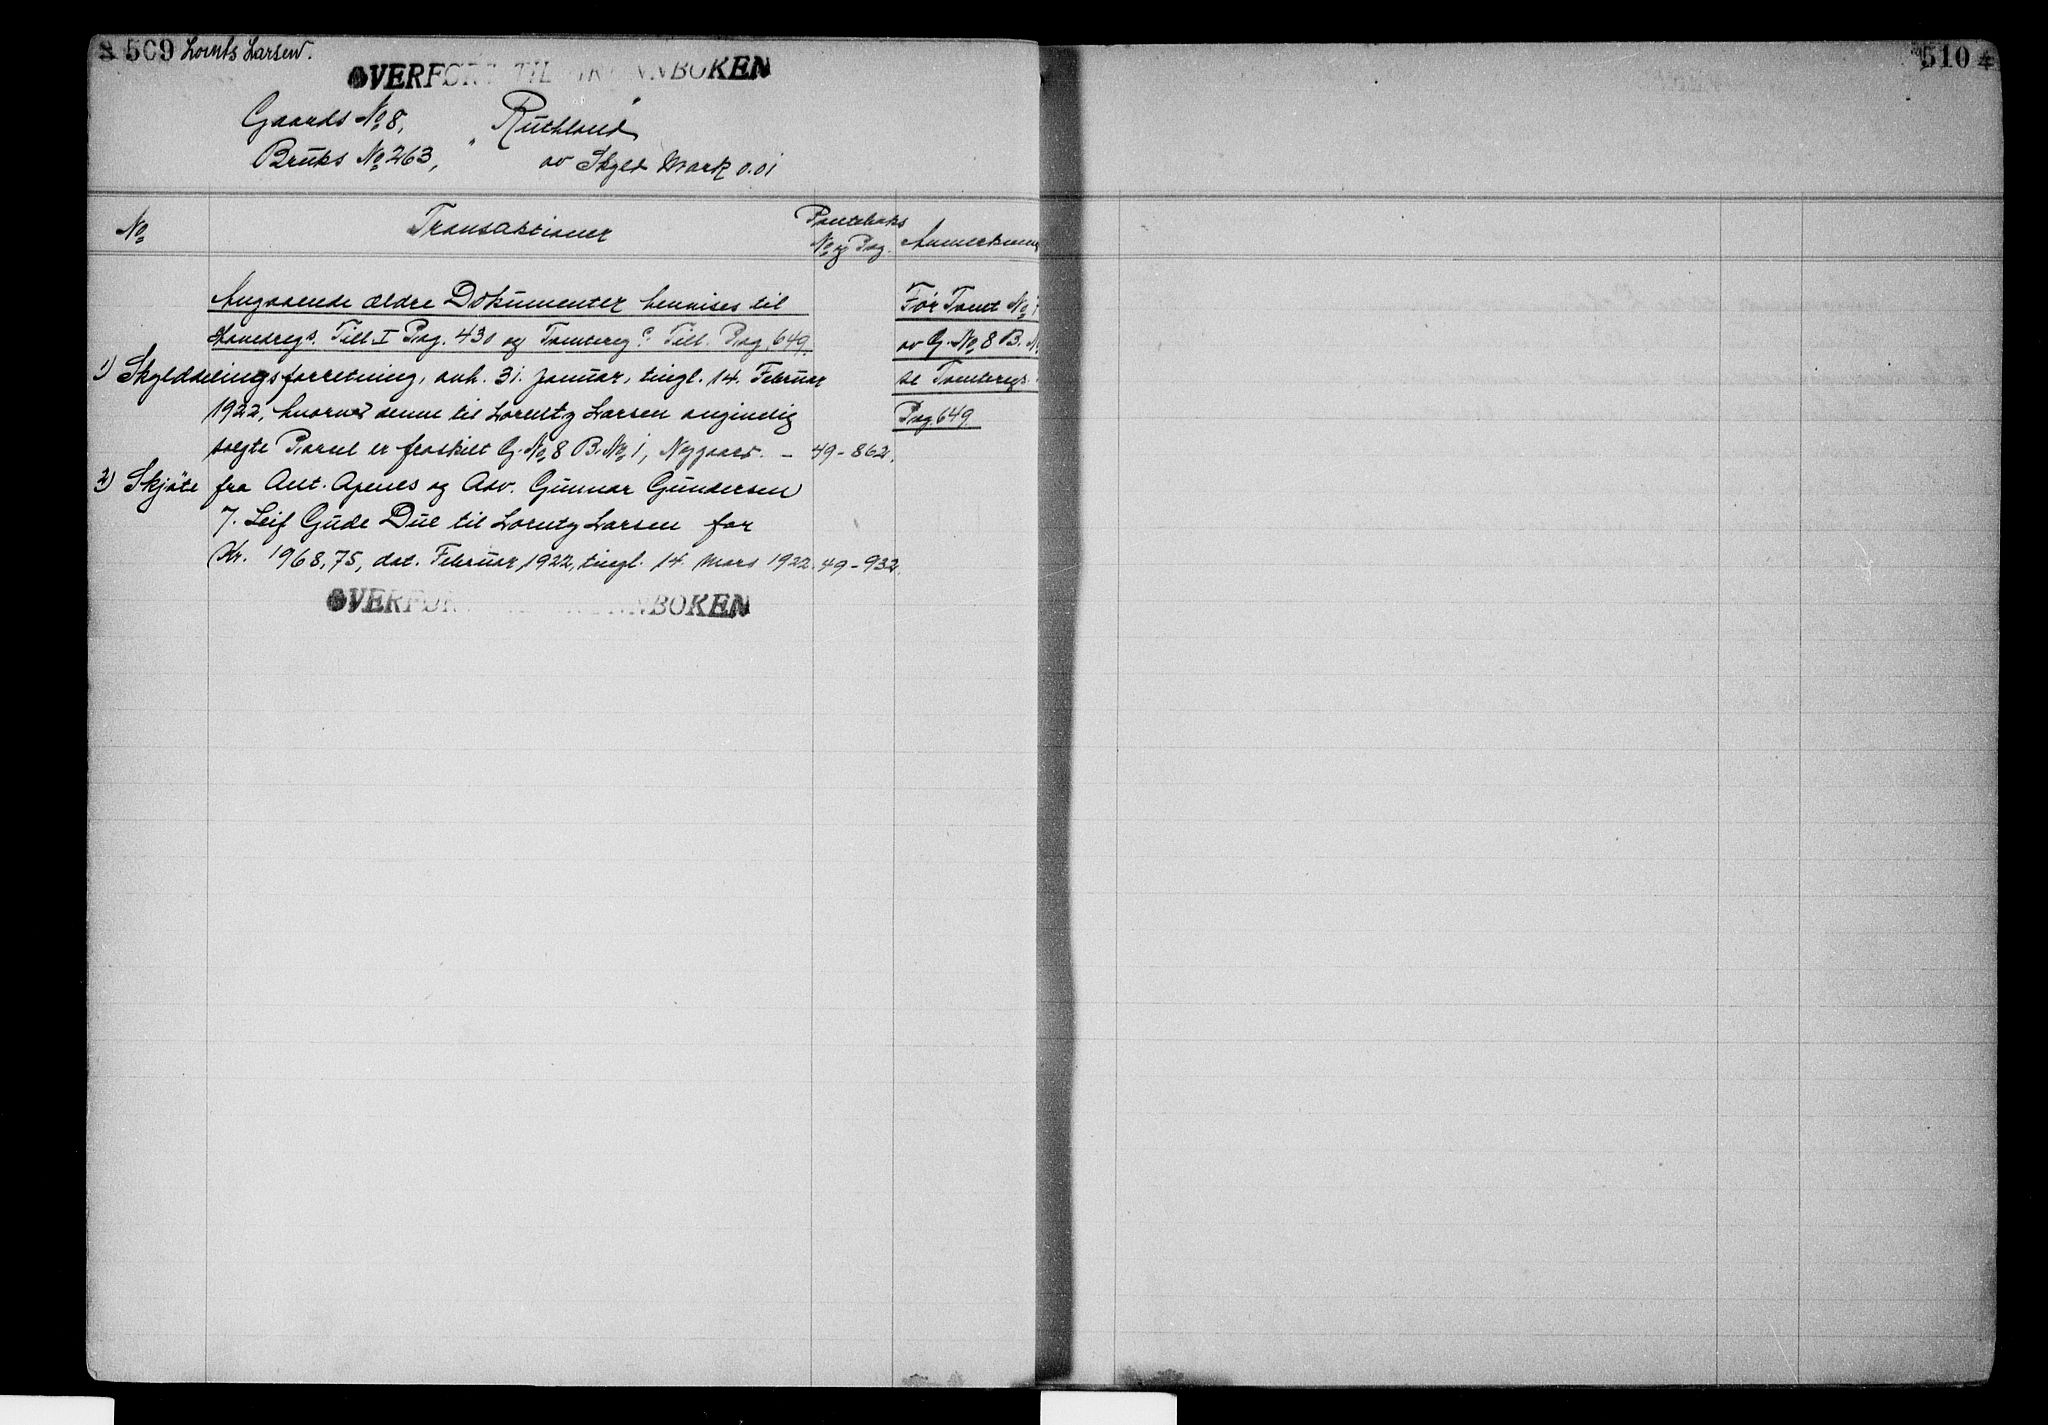 509 Lorents Larsen.
OVERFØRT TIL GRUNNBOKEN
Gaards No 8, "Ruthland"
Bruks No 263, av Skyld Mark 0.01
No Transaktioner Panteboks No og Pag. Anmerkning
Angaaende ældre Dokumenter henvises til
Hovedregs. Till I Pag. 430 og Tomtereg. Till. Pag. 649.
1) Skylddelingsforretning, avh. 31. Januar, tingl. 14. Februar
1922, hvorved denne til Lorentz Larsen angivelig
solgte Parcel er fraskilt G. No 8 B. No 1, Nygaard. — 49-862.
2) Skjöte fra Ant. Apenes og Adv. Gunnar Gundersen
f. Leif Gude Due til Lorentz Larsen for
Kr. 1968,75, dat. Februar 1922, tingl. 14. Mars 1922. 49-932.
OVERFØRT TIL GRUNNBOKEN
Før Tomt No
av G. No 8 B. No
se Tomteregs.
Pag. 649.
510